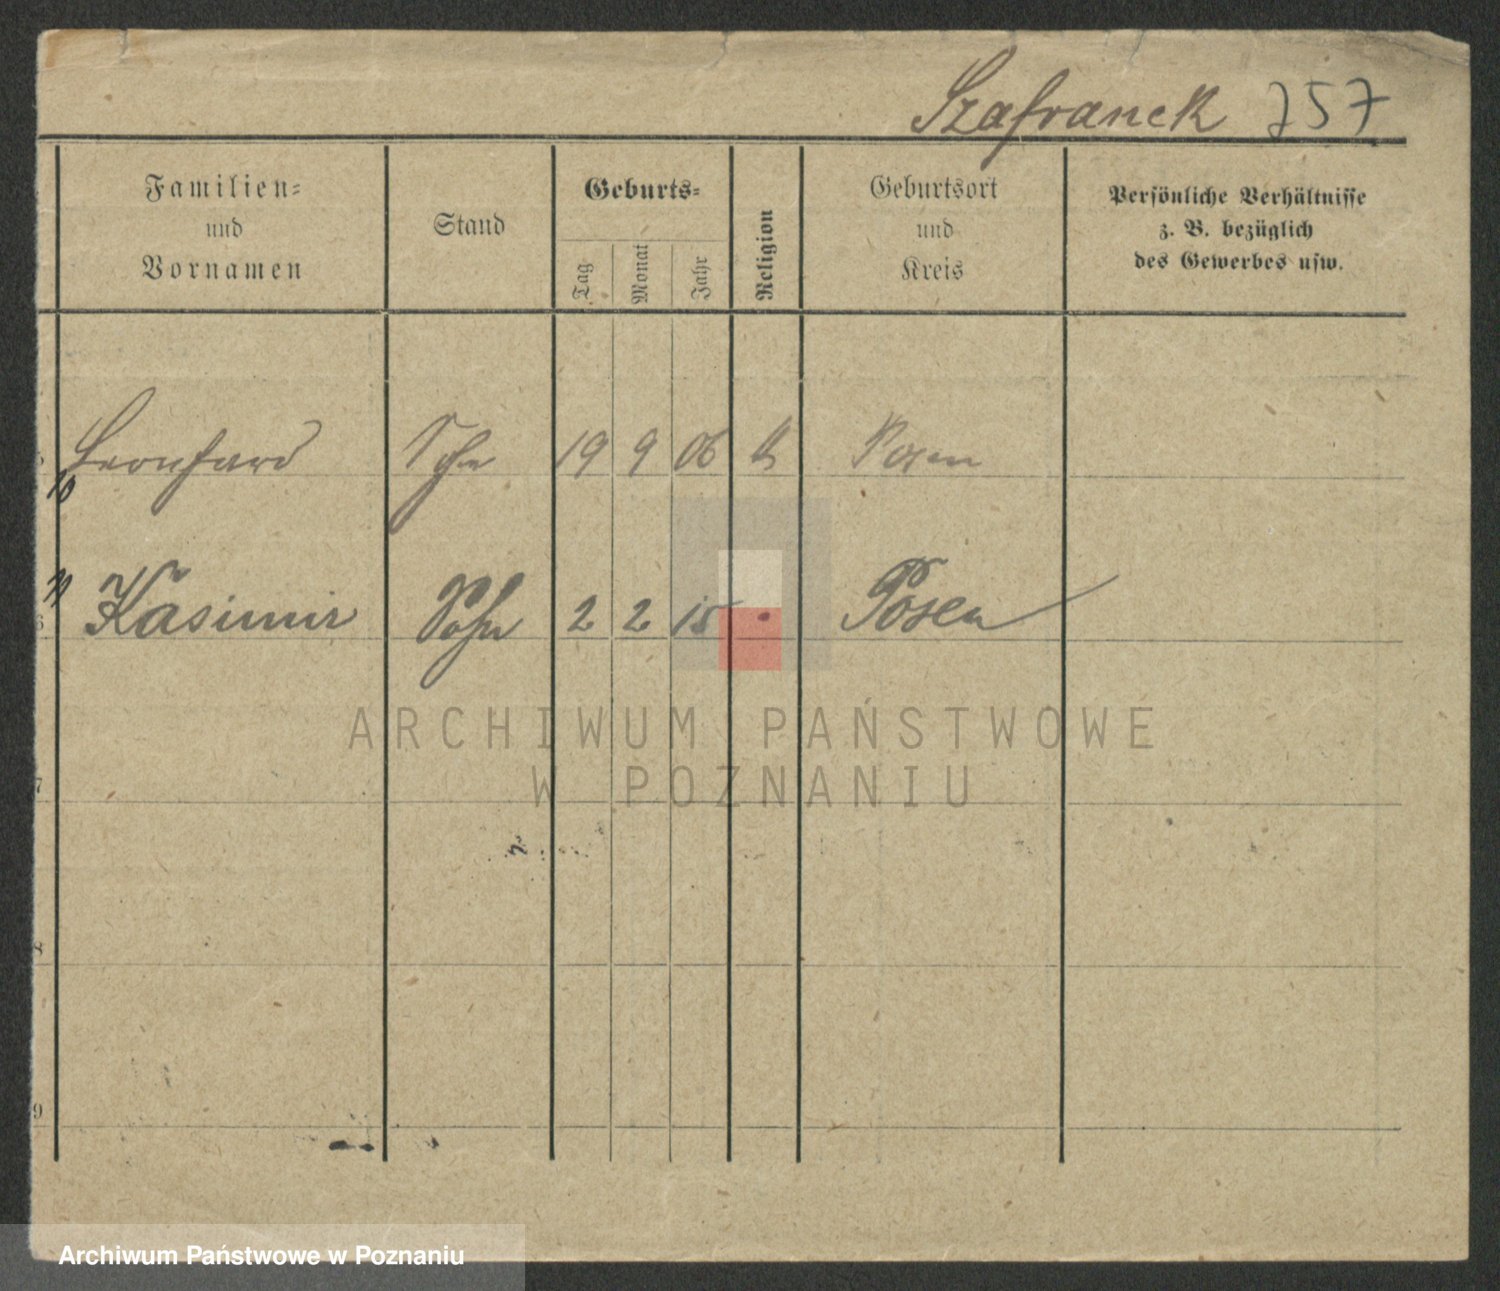 Szafranek 757
Familien=
und
Vornamen
Stand
Geburts=
Tag
Monat
Jahr
Religion
Geburtsort
und
Kreis
Persönliche Verhältnisse
z. B. bezüglich
des Gewerbes usw.
10 Leonhard Sohn 19 9 06 k Posen
11 6 Kasimir Sohn 2 2 15 Posen
ARCHIWUM PAŃSTWOWE
W POZNANIU
7
8
9
Archiwum Państwowe w Poznaniu